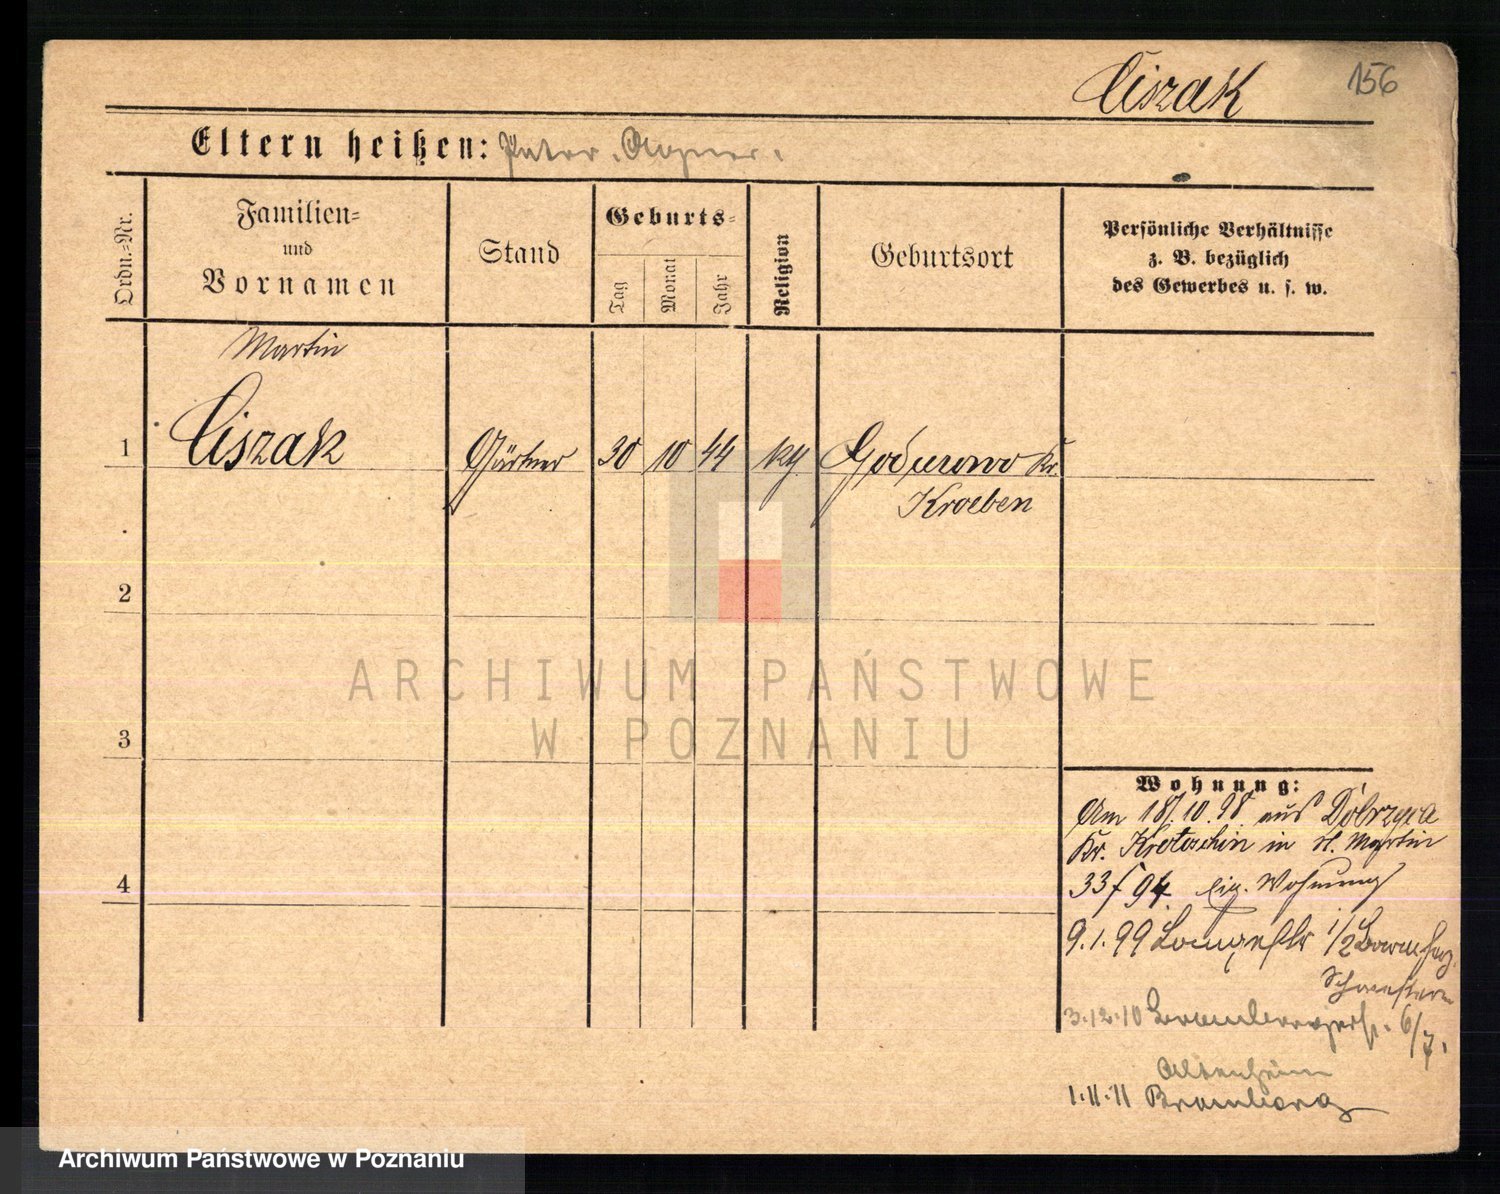 Ciszak
156
Eltern heißen: Peter, Agnes.
Ordn.=Nr.
Familien=
und
Vornamen
Stand
Geburts=
Tag
Monat
Jahr
Religion
Geburtsort
Persönliche Verhältnisse
z. B. bezüglich
des Gewerbes u. s. w.
Martin
1 Ciszak Gärtner 30 10 44 kth. Godurowo Kr.
Kroeben
2
3
4
ARCHIWUM PAŃSTWOWE
W POZNANIU
Wohnung:
Am 18/10.98. aus Dobrzyca
Kr. Krotoschin in St. Martin
33 f 94 Eig. Wohnung
9.1.99 Langestr 1/2 Barmherz.
Schwestern
3.12.10 6/7.
Altenheim
1.11.11 Bromberg
Archiwum Państwowe w Poznaniu